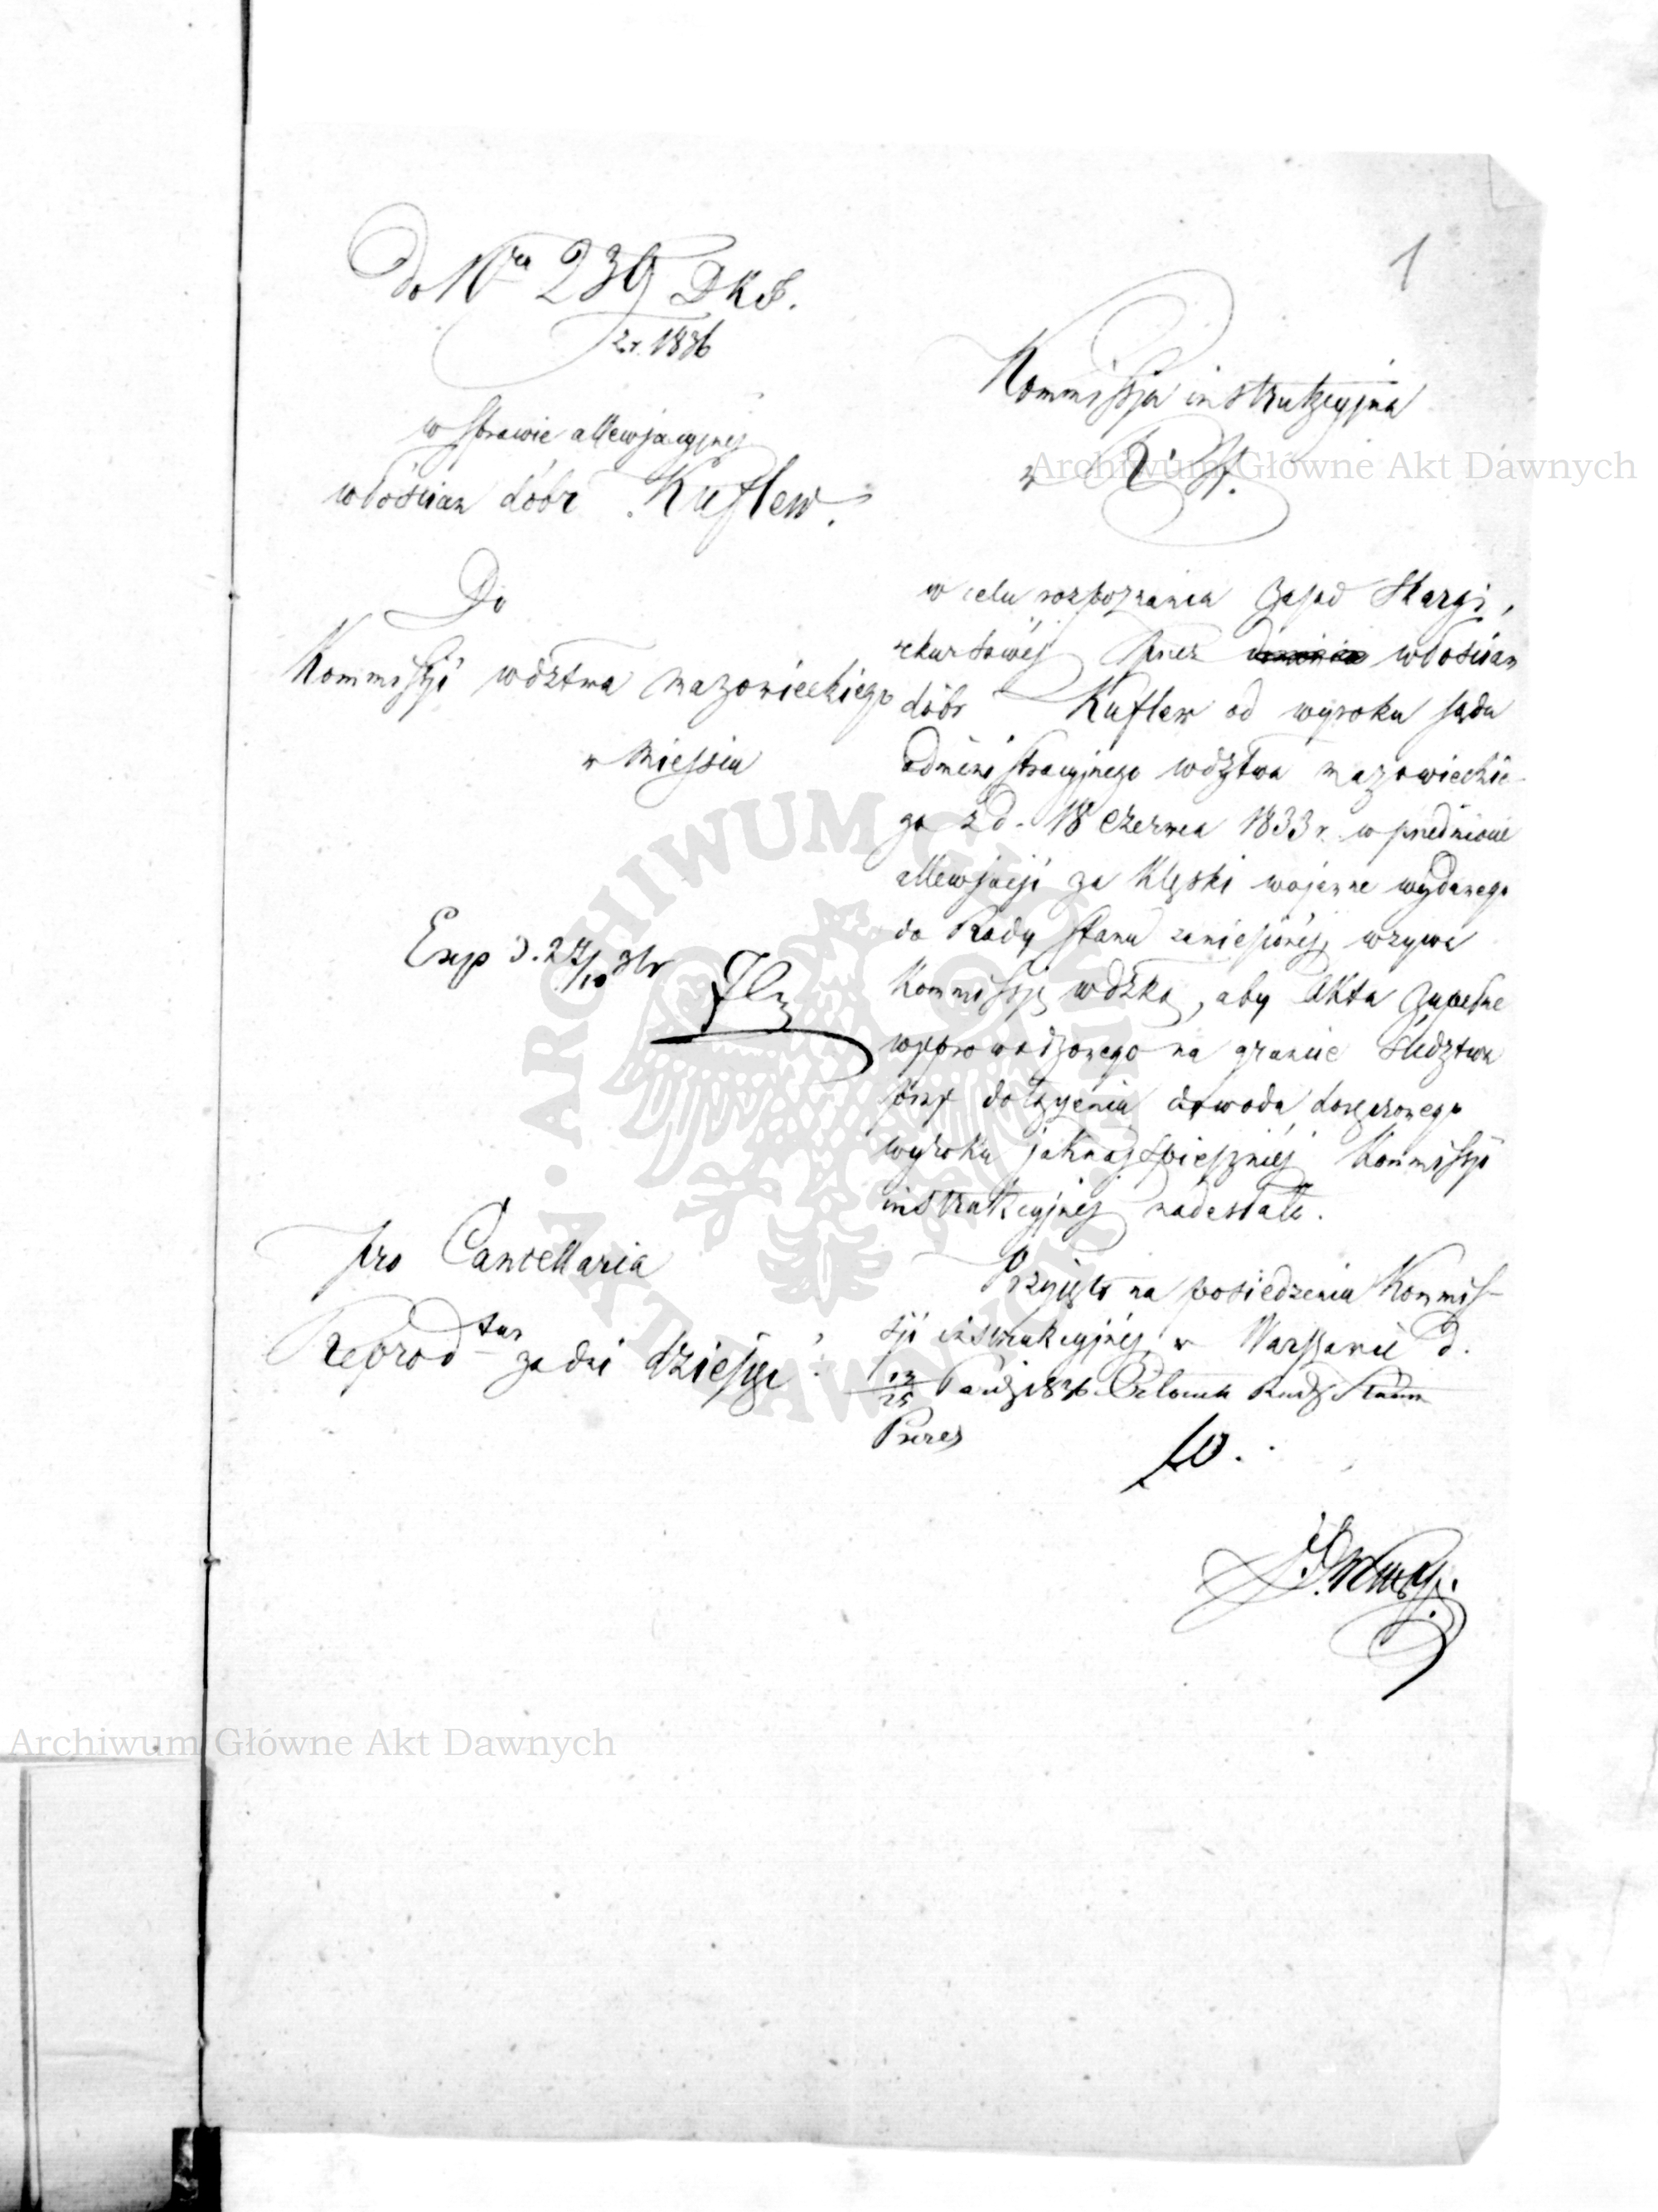 1
Do Nra 239 DKS.
z r. 1836
w sprawie allewjacyjnej
włościan dóbr Kuflew.
Do
Kommissyi wdztwa mazowieckiego
w Miejscu
Exp d. 27/10 36 r
pro Cancellaria
Reprod tur za dni dziesięć
Kommissja instrukcyjna
w
w celu rozpoznania zasad skargi,
rekursowej przez włościan
dóbr Kuflew od wyroku sądu
administracyjnego wdztwa mazowieckie-
go z d. 18 Czerwca 1833 r. w przedmiocie
allewjacji za klęski wojenne wydanego
do Rady Stanu zaniesionej, wzywa
Kommissję wdzką, aby Akta zupełne
wyprowadzonego na gruncie śledztwa
przy dołączeniu dowodu doręczonego
wyroku jaknajśpieszniej Kommissyi
instrukcyjnej nadesłała.
Przyjęto na posiedzeniu Kommis-
syi instrukcyjnej w Warszawie d.
13/25 Paźdz 1836. Członek Rady Stanu
Prezes
Archiwum Główne Akt Dawnych
ARCHIWUM GŁÓWNE AKT DAWNYCH
Archiwum Główne Akt Dawnych